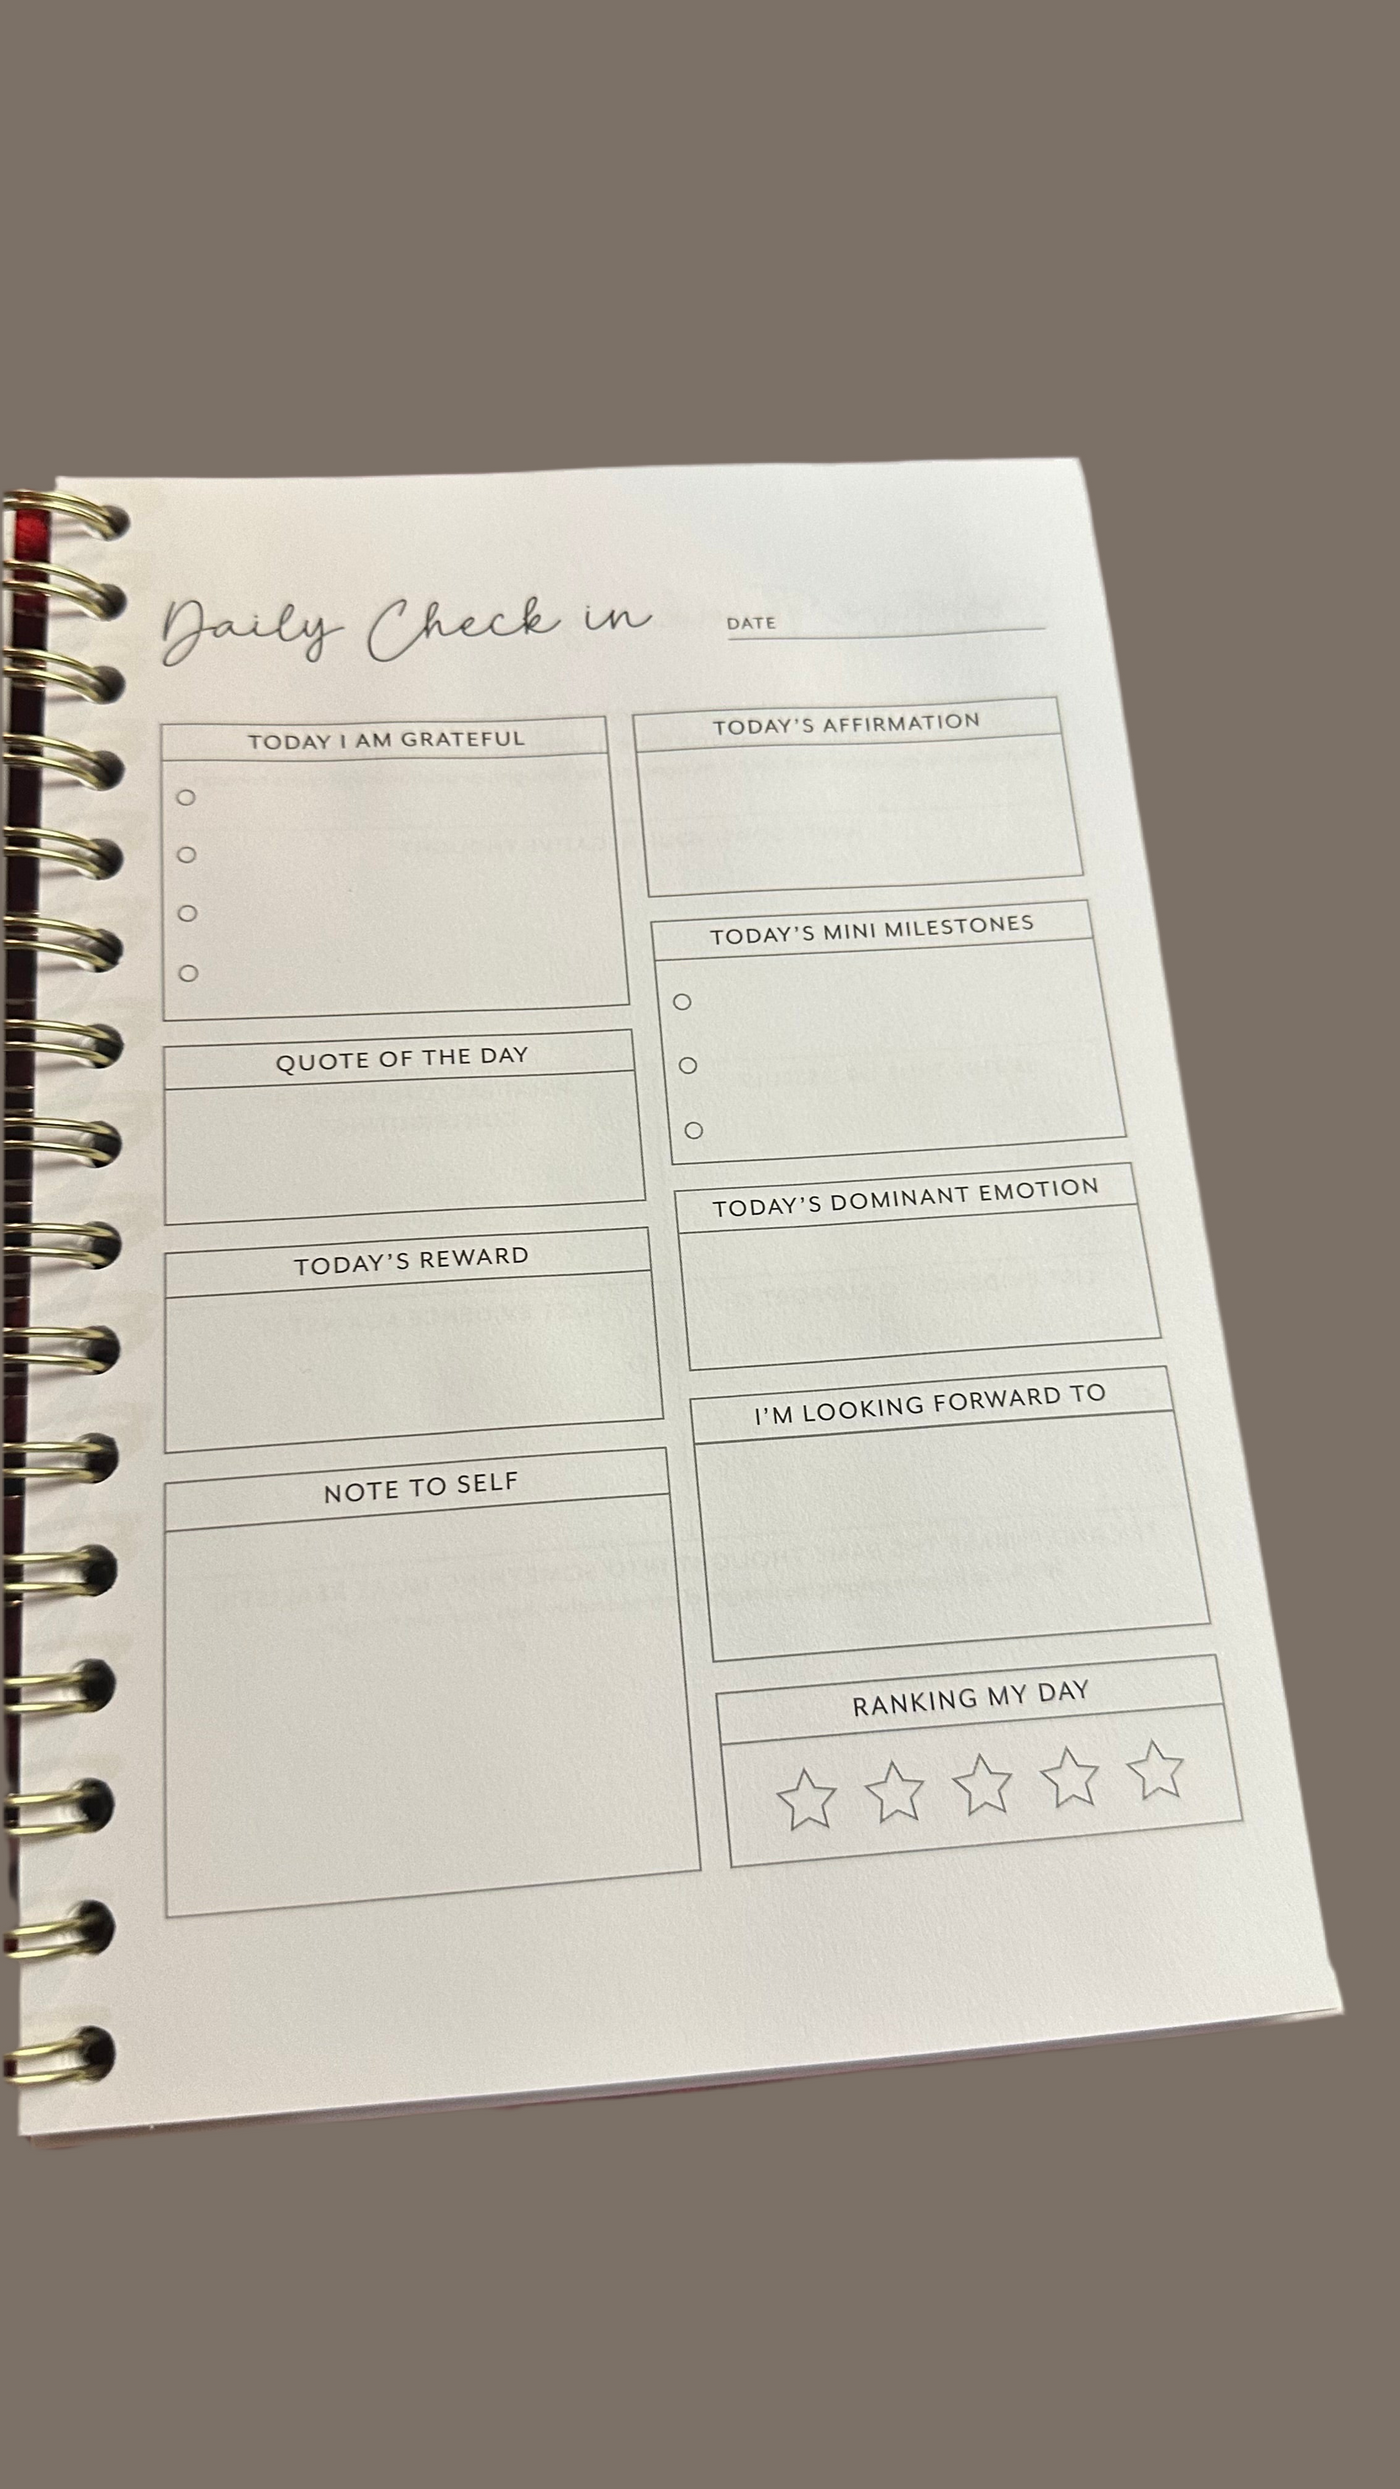 Daily Check in
DATE
TODAY I AM GRATEFUL
QUOTE OF THE DAY
TODAY'S REWARD
NOTE TO SELF
TODAY'S AFFIRMATION
TODAY'S MINI MILESTONES
TODAY'S DOMINANT EMOTION
I'M LOOKING FORWARD TO
RANKING MY DAY